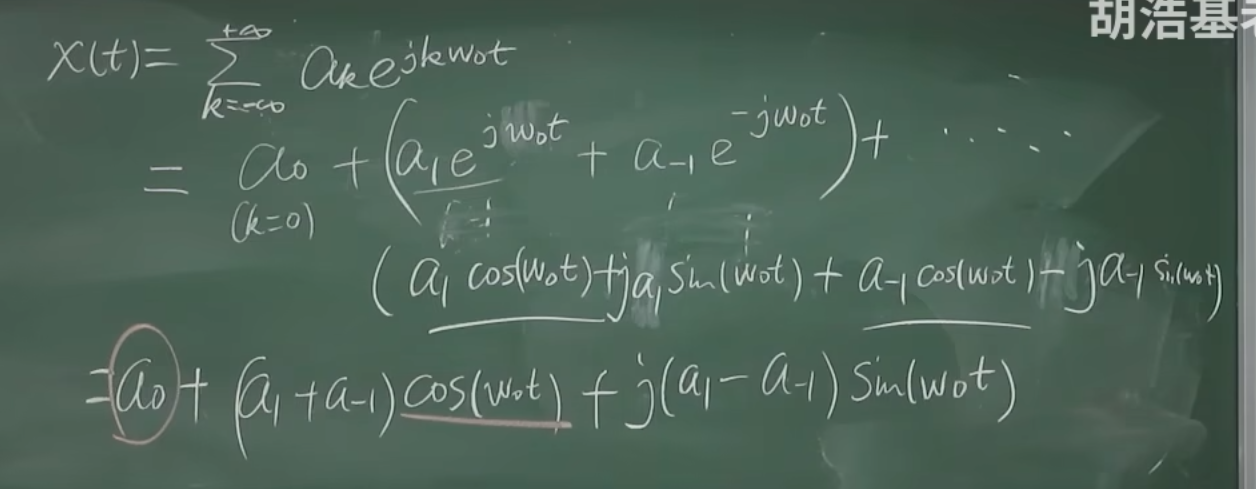 胡浩基
x(t)= Σ_{k=-∞}^{+∞} a_k e^{jkw₀t}
= a₀ + (a₁e^{jw₀t} + a₋₁e^{-jw₀t}) + ······
(k=0)
(a₁ cos(w₀t)+ja₁ sin(w₀t) + a₋₁ cos(w₀t) - ja₋₁ sin(w₀t))
=a₀ + (a₁ + a₋₁) cos(w₀t) + j(a₁ - a₋₁) sin(w₀t)